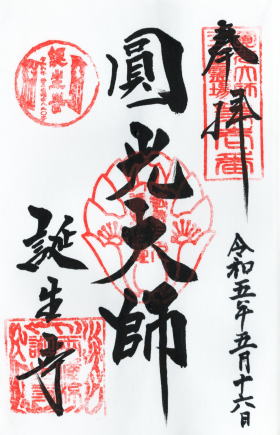 奉拝
令和五年五月十六日
圓光大師
誕生寺